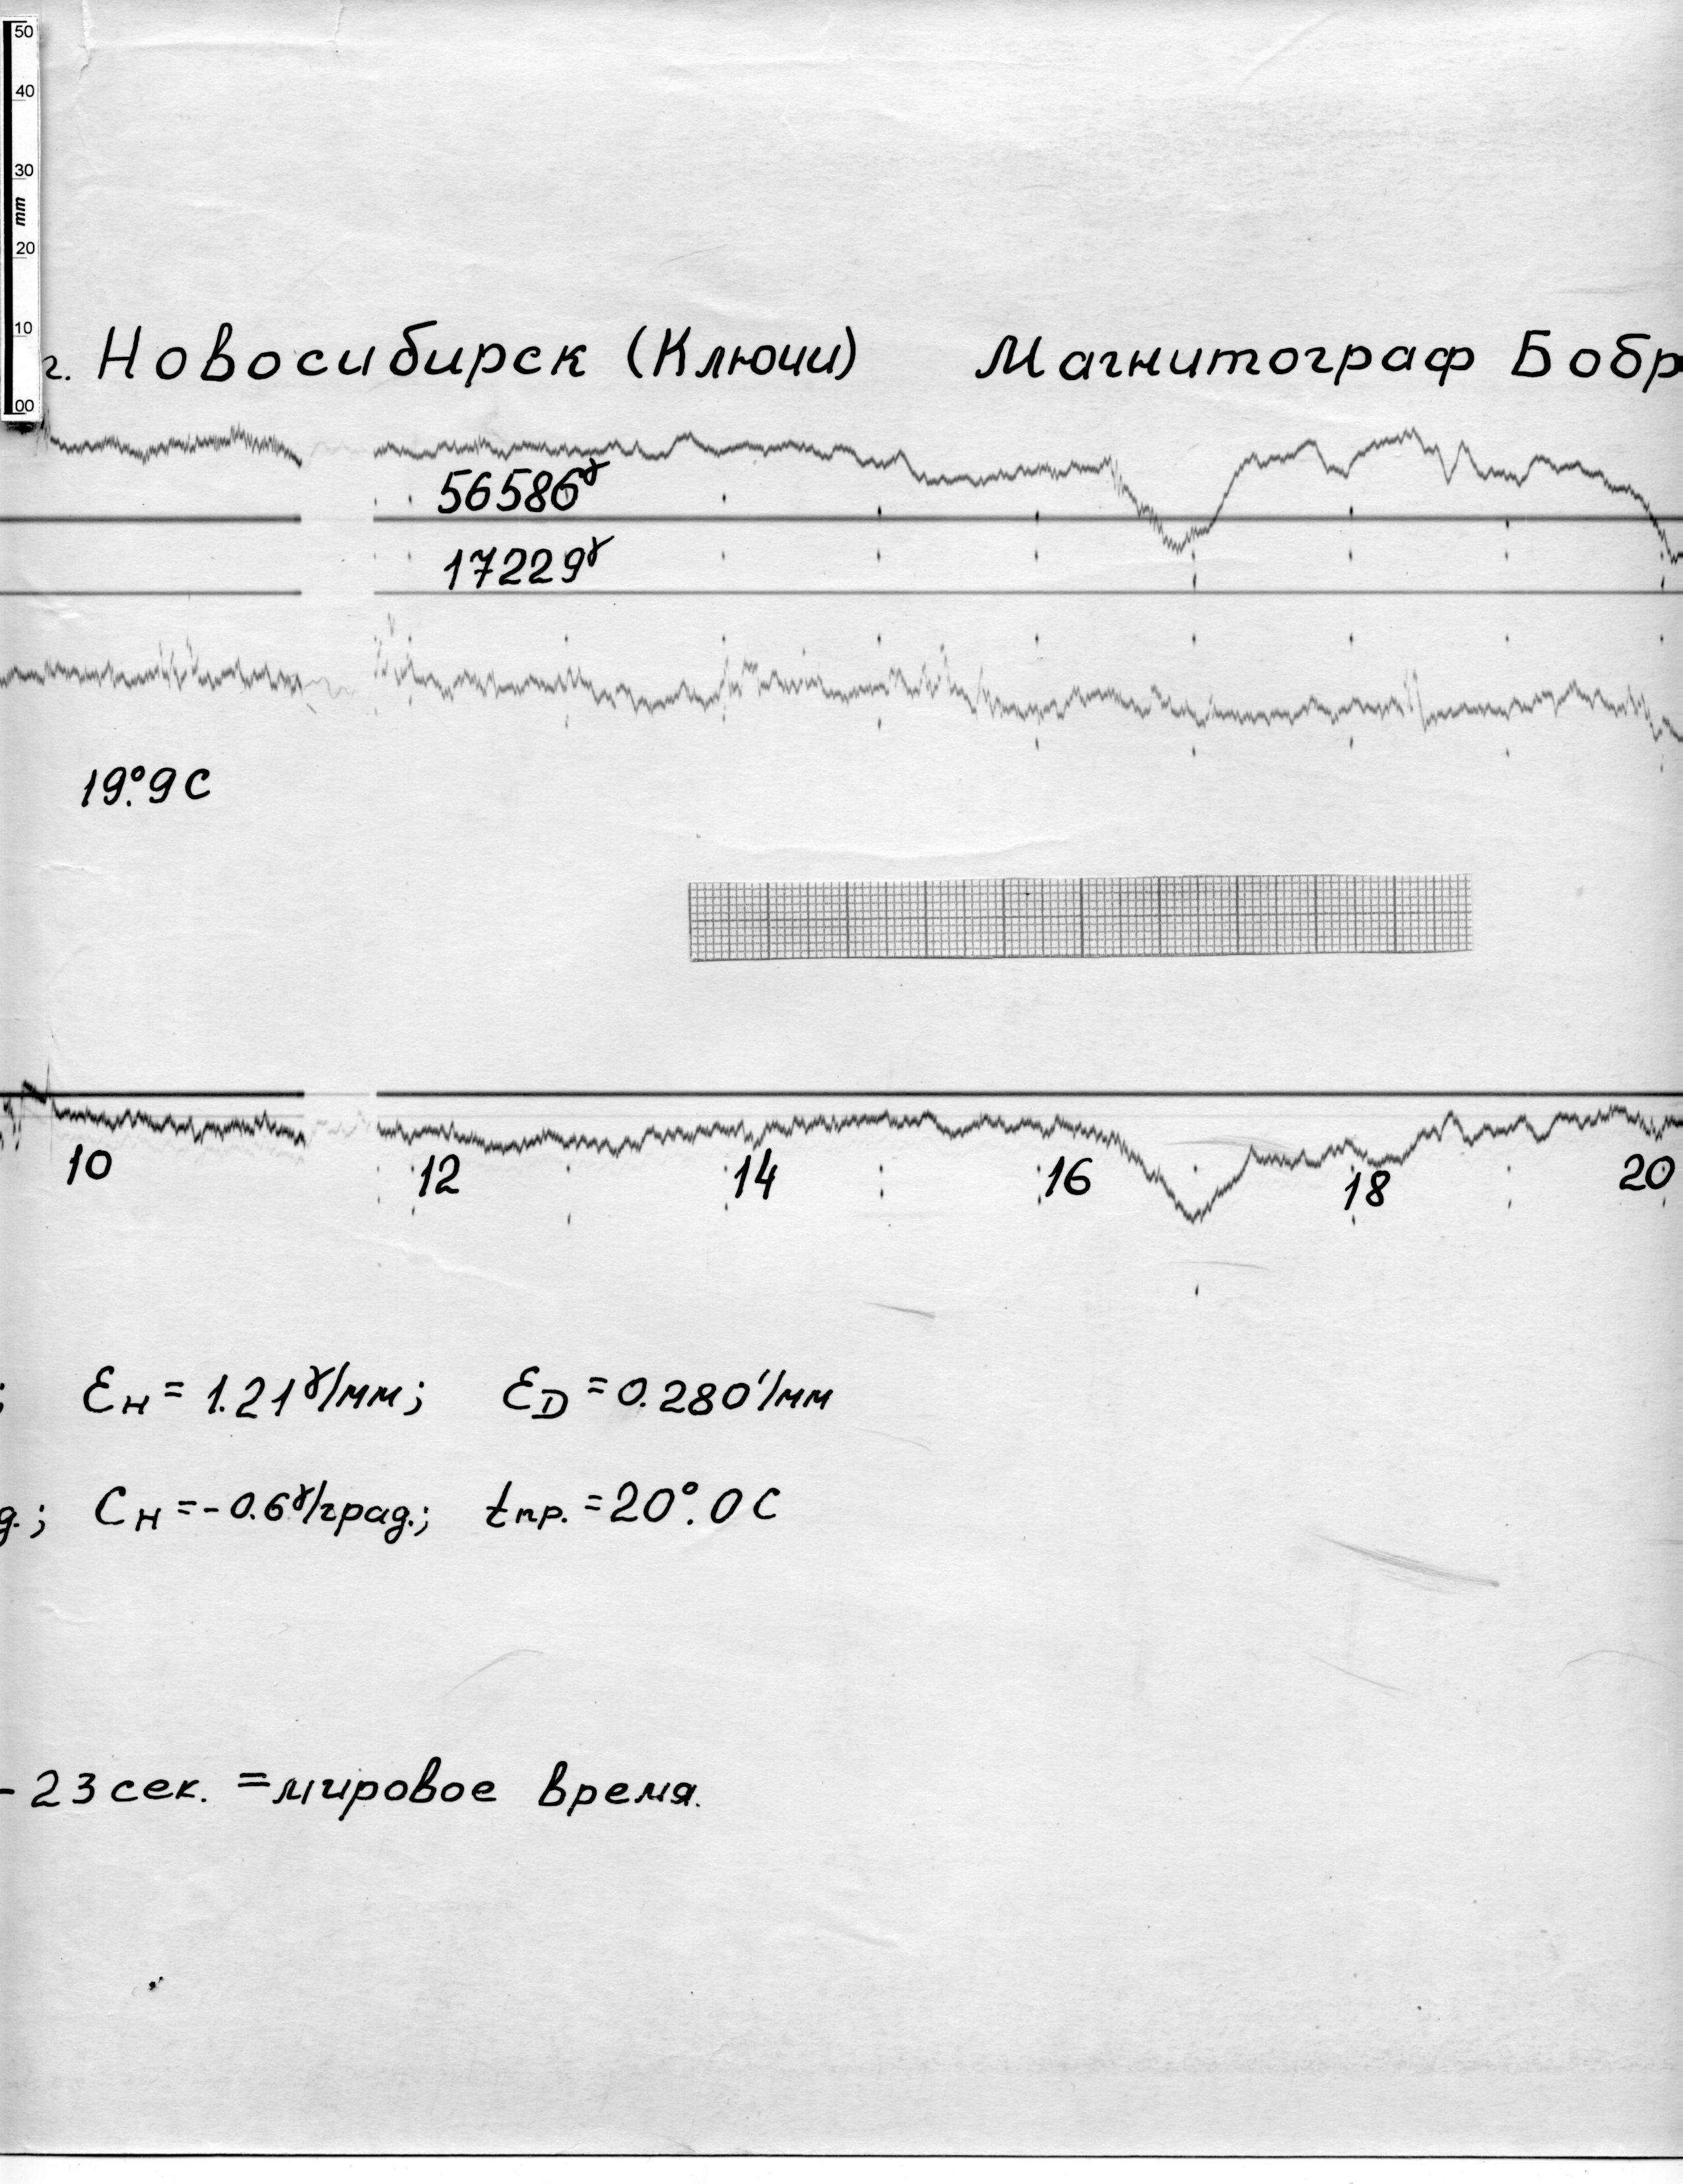 50
40
30
mm
20
10
00
г. Новосибирск (Ключи) Магнитограф Бобр
56586γ
17229γ
19.°9 C
10 12 14 16 18 20
; Ɛн = 1.21γ/мм; ƐD = 0.280'/мм
д.; Cн = -0.6γ/град.; tпр. = 20°.0 C
- 23 сек. = мировое время.